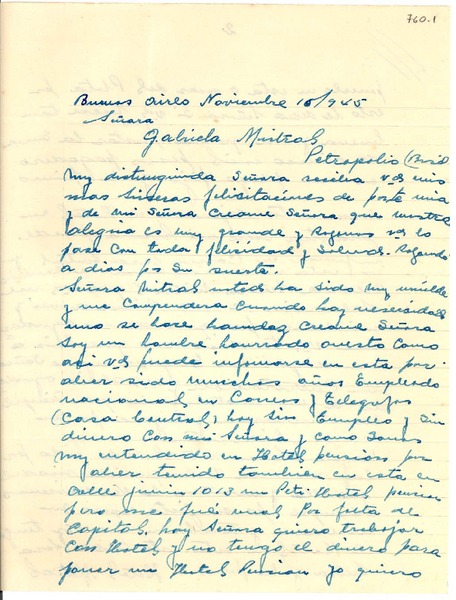 760-1
Buenos Aires Noviembre 16/945
Señara
Gabriela Mistral
Petropolis (Brasil
My distinguida Señara reciba Vd mis
mas sinseras felisitaciones de parte mia
y de mi Señora Creame Señora que nuestra
alegria es muy grande y Rogamos Vd lo
pase con toda felisidad y Salud. Rogando
a dios por Su suerte.
Señara Mistral usted ha sido My umilde
y me Comprendera Cuando hay nesesidad
uno se hase haundaz Creame Señora
Soy un hombre honrriado onesto Como
asi Vd puede infomarse en esta por
aber sido munchos años Empleado
nacional en Correos y Telegrafos
(Casa Central) hoy Sin Empleo y Sin
dinero Con mi Señora y Como Somos
My entendido en Hotel pensions por
aber tenido tambien en esta en
Calle junin 1013 un Peti-Hotel pension
pero me fué mal Por falta de
Capital. hoy Señora quiero trabajar
Con Hotel y no tengo el dinero para
poner un Hotel Pension yo quiero